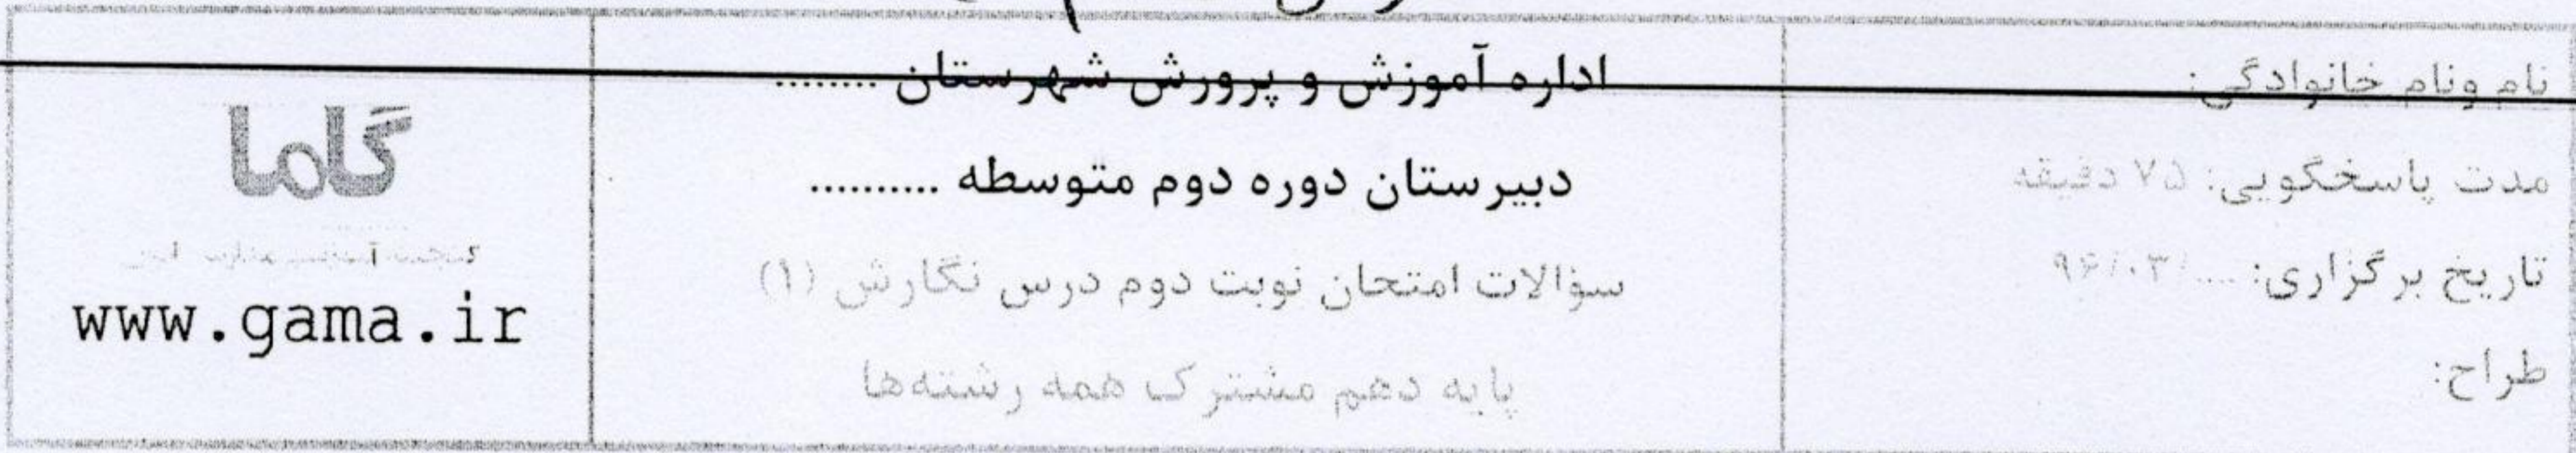 نام ونام خانوادگی:
مدت پاسخگویی: ۷۵ دقیقه
تاریخ برگزاری: .... /۹۶/۰۳
طراح:
اداره آموزش و پرورش شهرستان ........
دبیرستان دوره دوم متوسطه ..........
سؤالات امتحان نوبت دوم درس نگارش (۱)
پایه دهم مشترک همه رشته‌ها
گاما
www.gama.ir